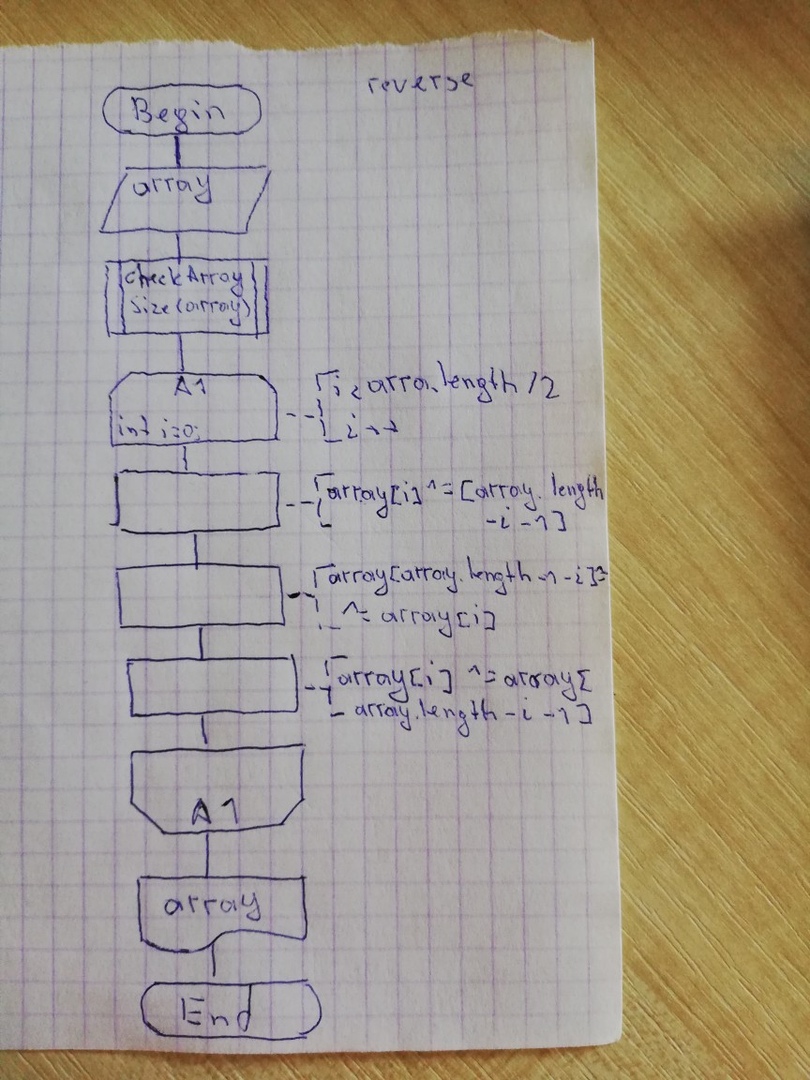 reverse
Begin
array
checkArray
Size(array)
A1
int i=0;
i < arra.length /2
i++
array[i] ^= [array.length
-i-1]
array[array.length-1-i]^=
^= array[i]
array[i] ^= array[
array.length-i-1]
A1
array
End